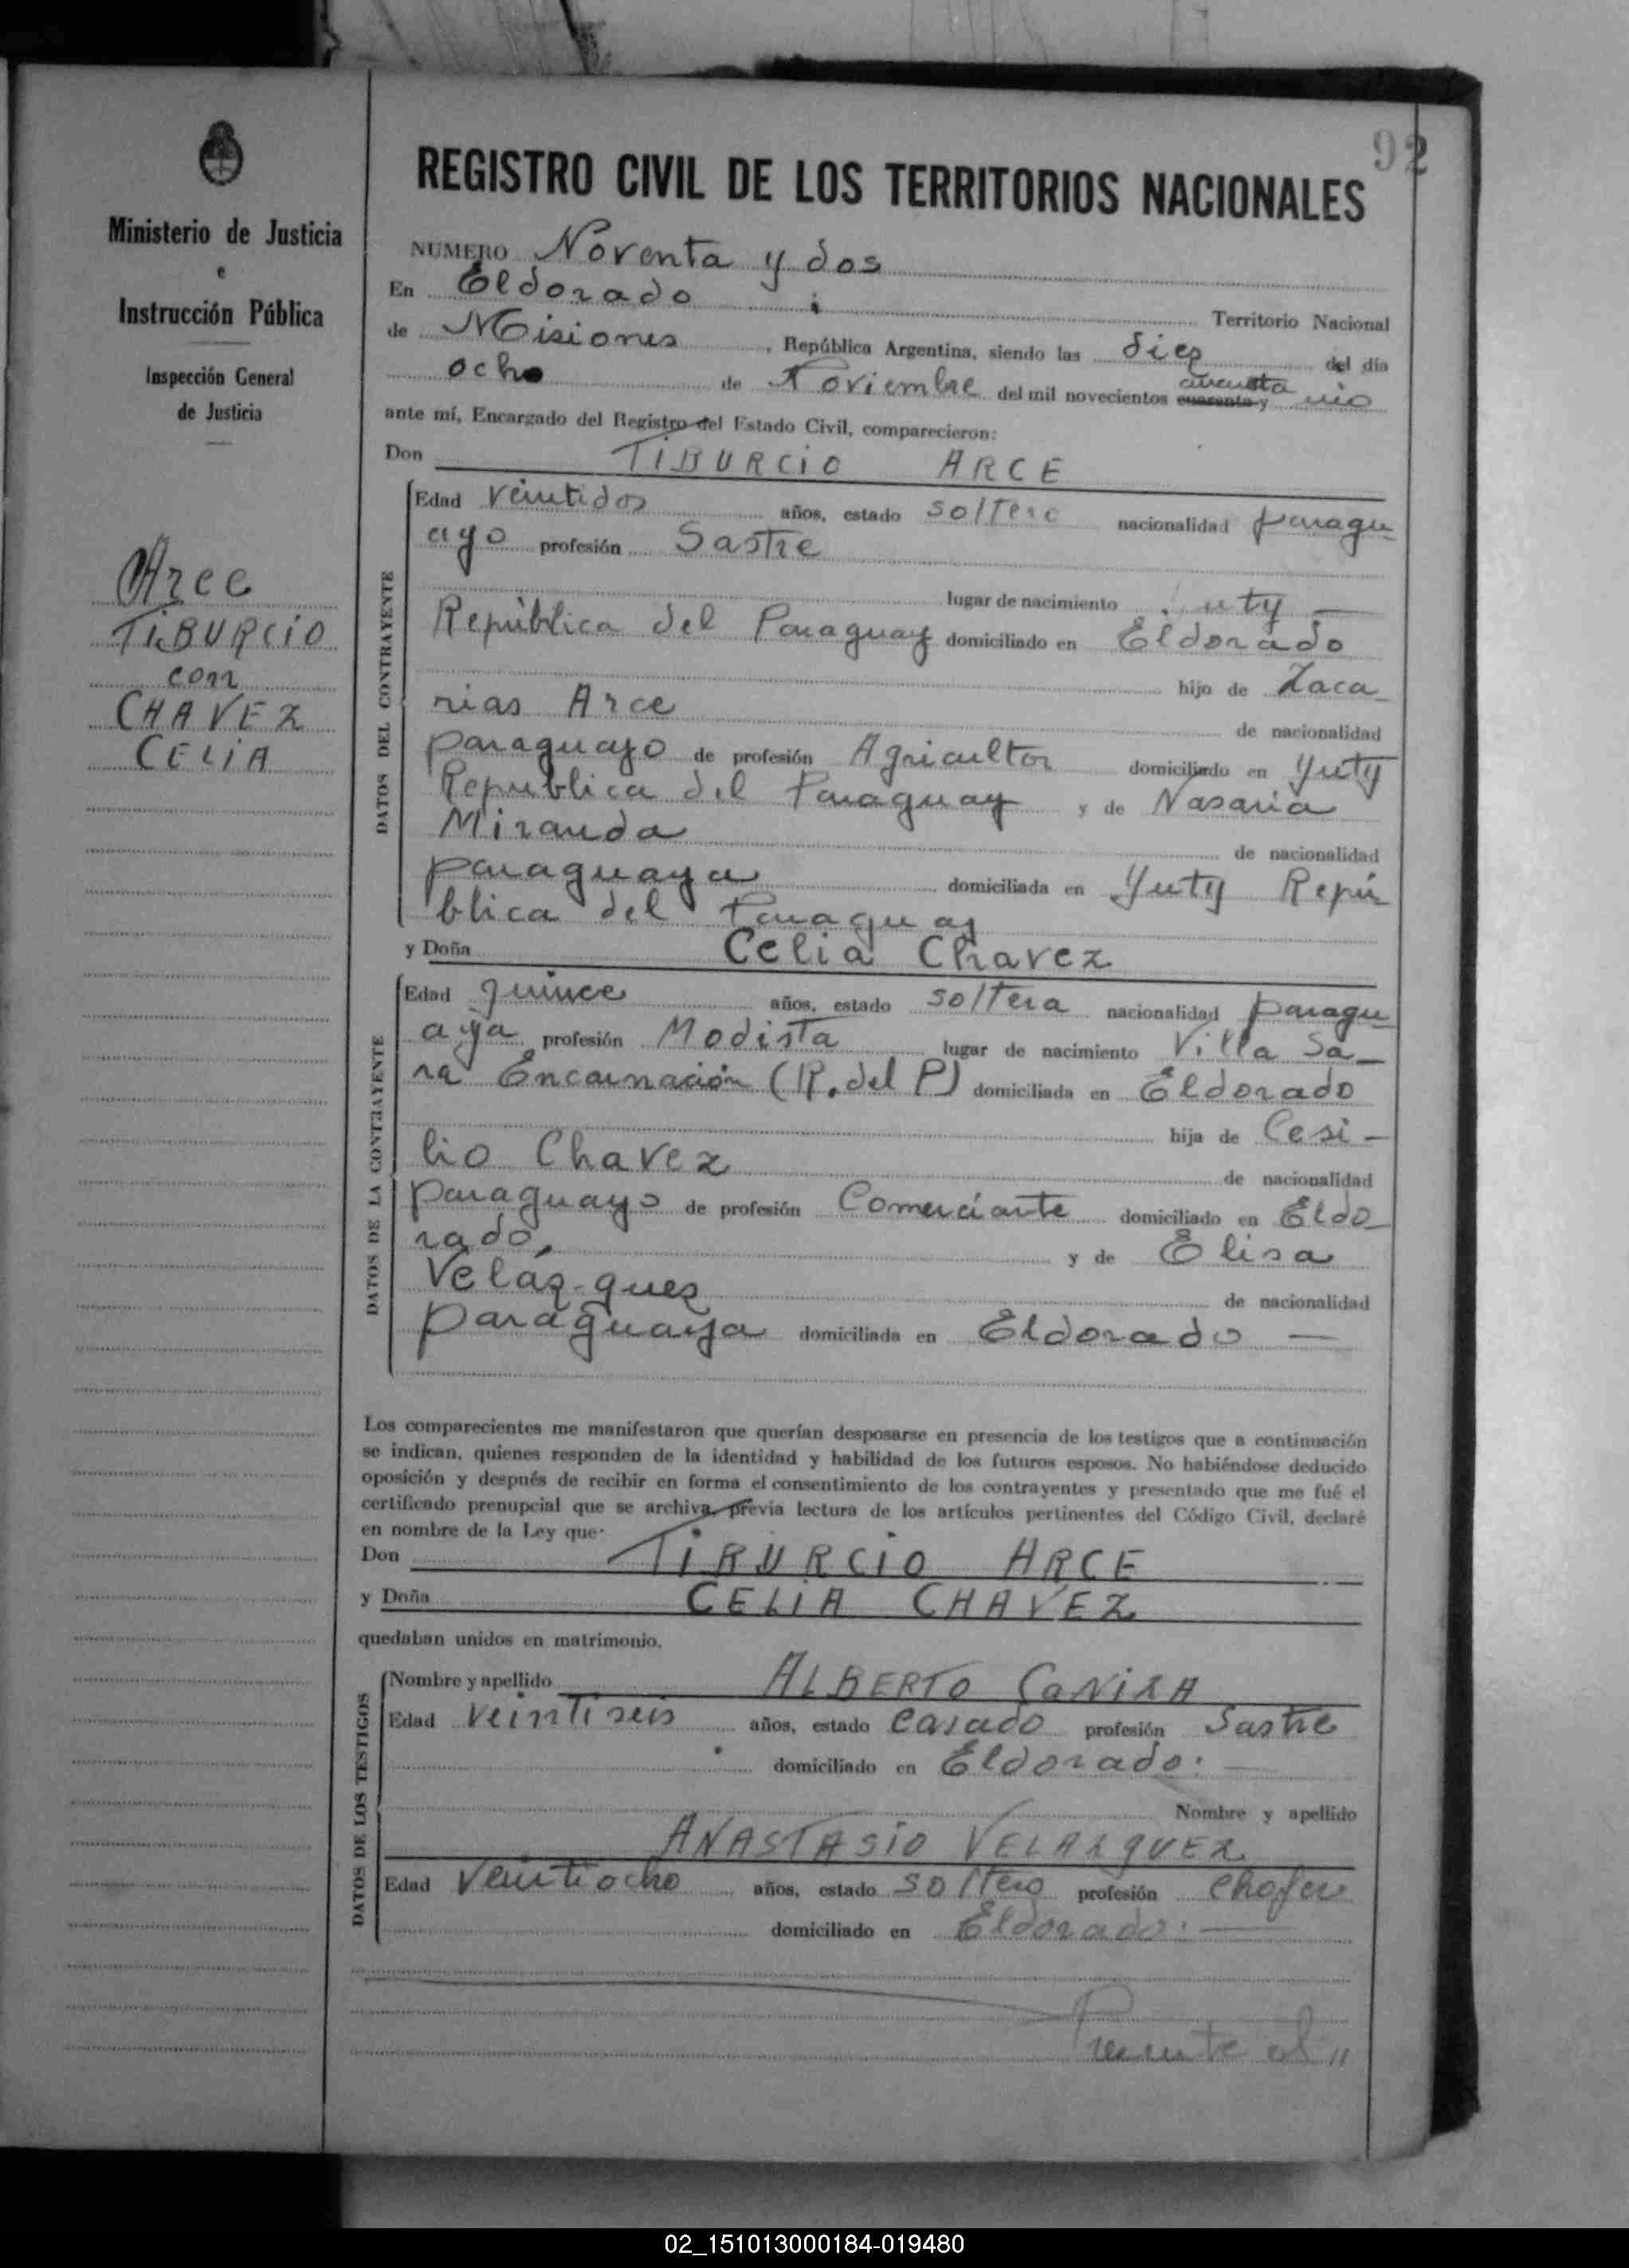 92
Ministerio de Justicia
e
Instrucción Pública
Inspección General
de Justicia
Arce
TIBURCIO
con
CHAVEZ
CELIA
REGISTRO CIVIL DE LOS TERRITORIOS NACIONALES
NUMERO Noventa y dos
En Eldorado Territorio Nacional
de Misiones, República Argentina, siendo las diez del día
ocho de Noviembre del mil novecientos cuarenta y
ante mí, Encargado del Registro del Estado Civil, comparecieron:
Don TIBURCIO ARCE
DATOS DEL CONTRAYENTE
Edad veintidos años, estado soltero nacionalidad paragu
ayo profesión Sastre
lugar de nacimiento
República del Paraguay domiciliado en Eldorado
hijo de Zaca
rias Arce
de nacionalidad
paraguayo de profesión Agricultor domiciliado en Yuty
Republica del Paraguay y de Nasaria
Miranda
de nacionalidad
paraguaya domiciliada en Yuty Repú
blica del Paraguay
y Doña Celia Chavez
DATOS DE LA CONTRAYENTE
Edad quince años, estado soltera nacionalidad paragu
aya profesión Modista lugar de nacimiento Villa Sa_
ra Encarnación (R. del P) domiciliada en Eldorado
hija de Cesi-
lio Chavez
de nacionalidad
paraguayo de profesión Comerciante domiciliado en Eldo_
rado, y de Elisa
Velázquez
de nacionalidad
paraguaya domiciliada en Eldorado —
Los comparecientes me manifestaron que querían desposarse en presencia de los testigos que a continuación
se indican, quienes responden de la identidad y habilidad de los futuros esposos. No habiéndose deducido
oposición y después de recibir en forma el consentimiento de los contrayentes y presentado que me fué el
certificado prenupcial que se archiva, previa lectura de los artículos pertinentes del Código Civil, declaré
en nombre de la Ley que:
Don TIBURCIO ARCE
y Doña CELIA CHAVEZ
quedaban unidos en matrimonio.
DATOS DE LOS TESTIGOS
Nombre y apellido ALBERTO
Edad veintiseis años, estado casado profesión Sastre
domiciliado en Eldorado: —
Nombre y apellido
ANASTASIO VELAZQUEZ
Edad veintiocho años, estado soltero profesión chofer
domiciliado en Eldorado: —
al "
02_151013000184-019480